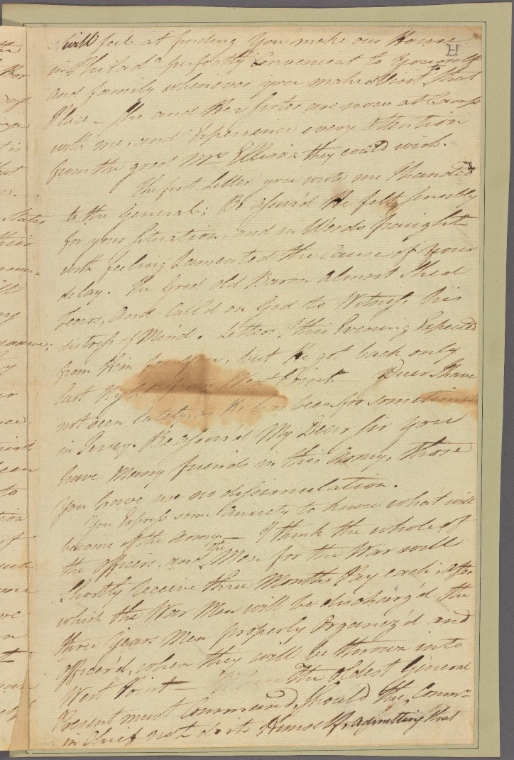 will feel at finding you make our House
in Philada perfectly convenient to yourself
and family whenever you make a Visit that
Place. She and her sister are now at Camp
with me, and experience every attention
from the good Mrs Ellison they could wish.
The first Letter you wrote me I handed
to the General; Be assured He felt sensibly
for your situation, and in Words fraight
with feeling Lamented the Cause of your
delay. The Good old Baron almost Shed
Tears, and Call'd on God to Witness his
distress of Mind. Letters this Evening Expected
from Him but He got back only
last Night West Point I have
not seen He has been for sometime
in Jersey. Be assured My Dear Sir you
have Many friends in this Army, those
you have use no dissimulation.
You Express some Anxiety to know what will
become of the Army. I think the whole of
the Officers, and the Men for the War will
Shortly receive three Months Pay each, after
which the War Men will be discharg'd the
three years Men properly Organiz'd and
Officer'd, when they will be thrown into
West Point — The Oldest General
Present must Command, should the Comr
in Chief not do it Himself, admitting that
H